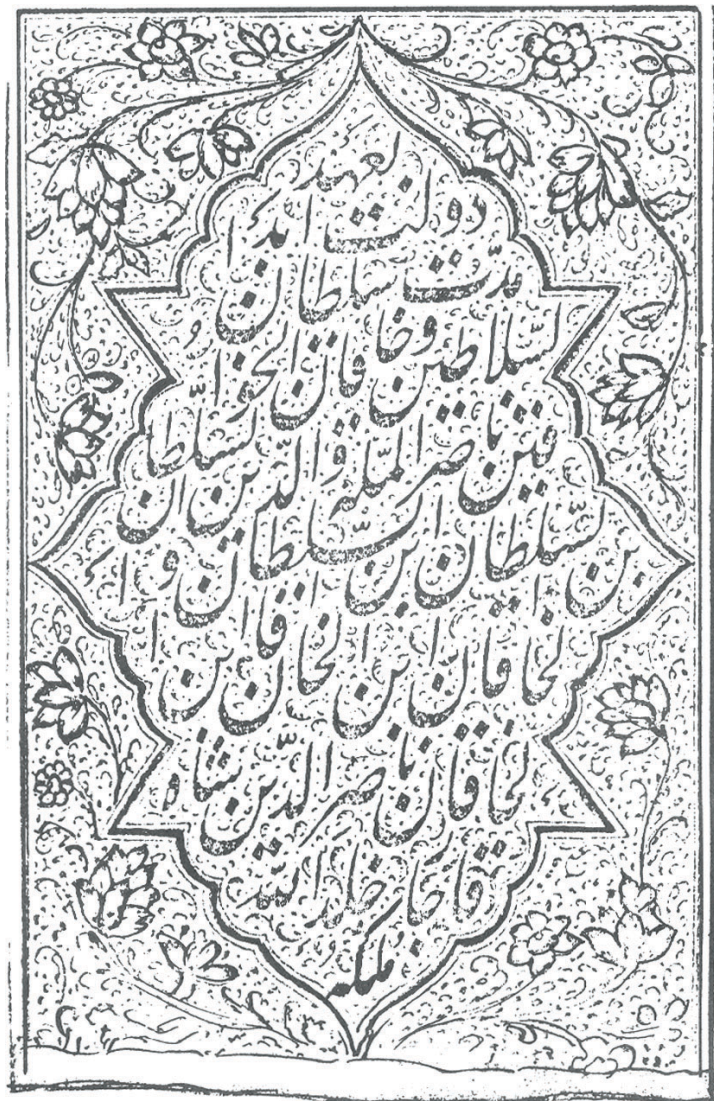 لعهد
دولت ابد
مدّت سلطان
السّلاطين و خاقان الخوا
قين ناصر الملّة و الدّين السّلطان
بن السّلطان ابن السّلطان و ا
لخاقان ابن الخاقان ابن ا
لخاقان ناصر الدّين شاه
قاجار خلد اللّه
ملكه